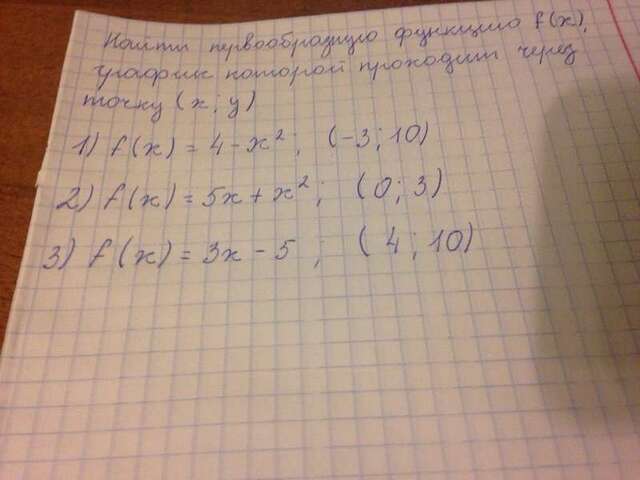 Найти первообразную функцию f(x),
график которой проходит через
точку (x; y)
1) f(x) = 4 - x²; (-3; 10)
2) f(x) = 5x + x²; (0; 3)
3) f(x) = 3x - 5; (4; 10)